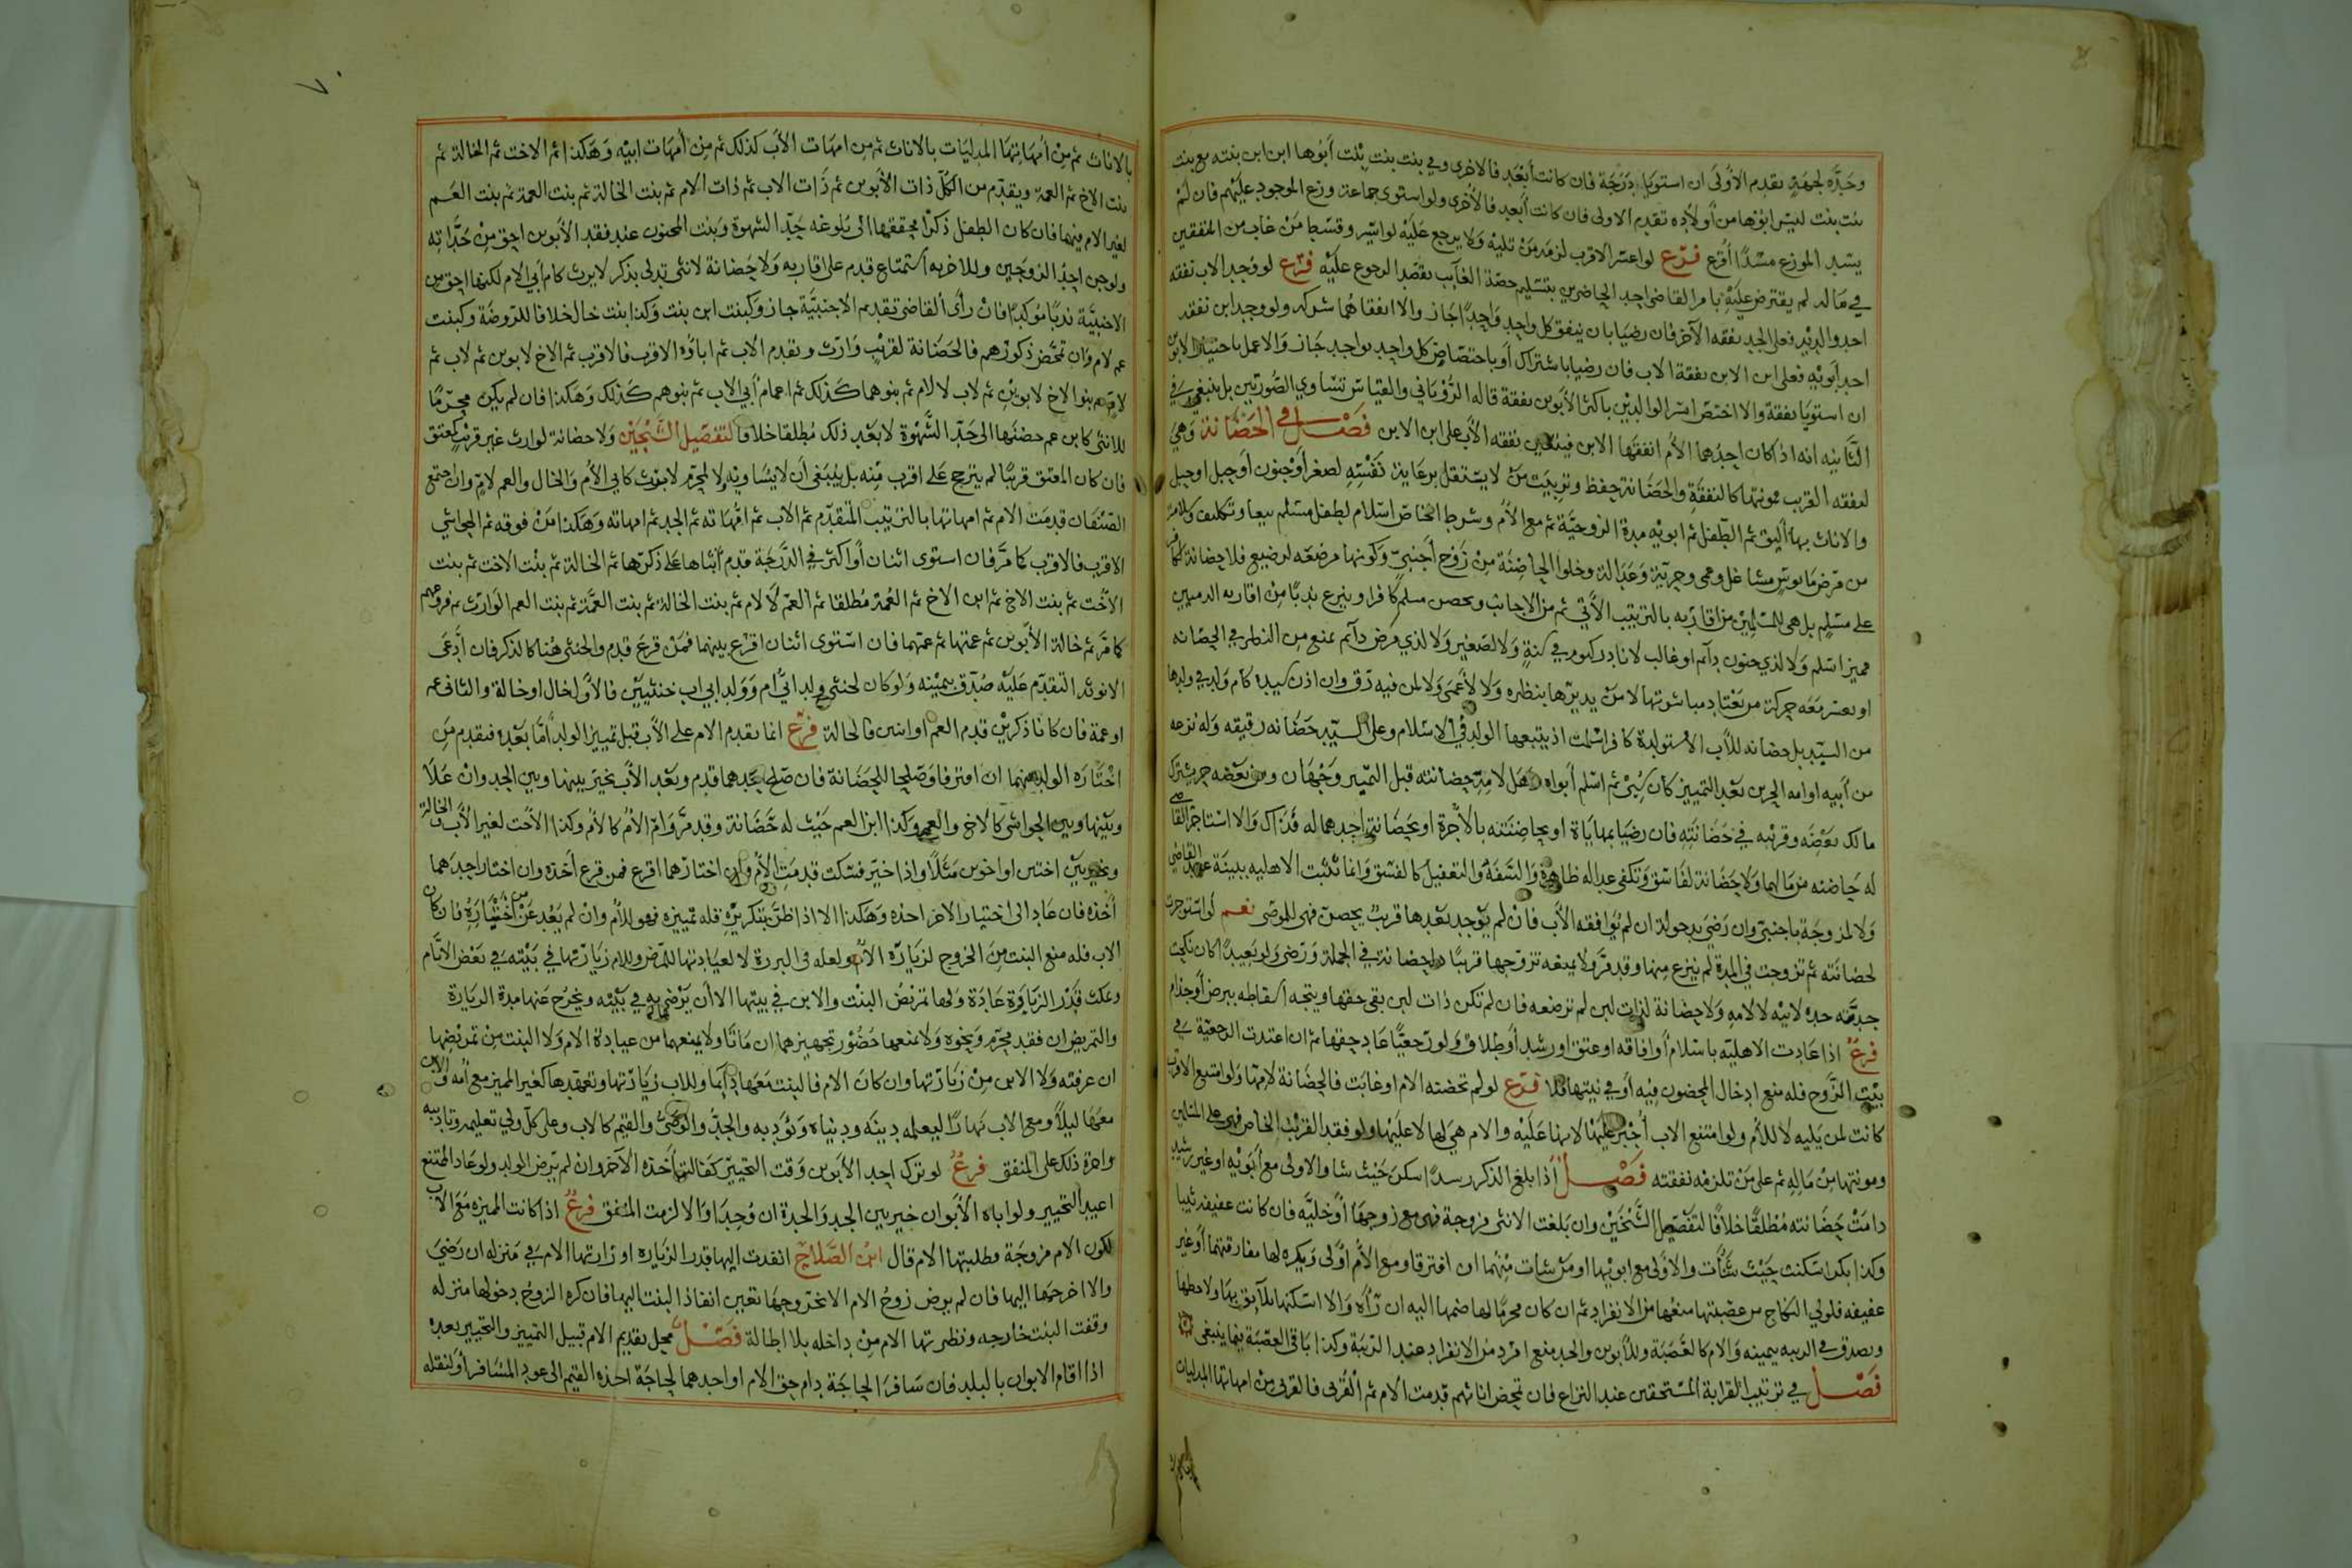 وجدَّة لجهة يقدم الأولى ان استويا درجة فان كانت أبعد فالاخرى وفي بنت بنت بنت أبوها ابن ابن بنته مع بنت
بنت بنت ليس ابوها من أولاده تقدم الاولى فان كانت أبعد فالأخرى ولو استوى جماعة وزع الموجود عليهم فان لم
يسد الموزع مسدًّا أقرع فرع لو اعسر الاقرب لزمد من تليه ولا يرجع عليه لو ايسر وقسط من غاب من المنفقين
في ماله لم يقترض عليه بامر القاضي احد الحاضرين بتسليم حصة الغايب بقصد الرجوع عليه فرع لو وجد الاب نفقة
احد والديه فعلى الجد نفقة الآخر فان رضيا بان ينفق كل واحد واحدًا جاز والا انفقا هما شركه ولو وجد ابن نفقة
احد أبويه فعلى ابن الابن نفقة الاب فان رضيا باشتراك أو باختصاص كل واحد بواحد جاز والا عمل باختيار الابوين
ان استويا نفقة والا اختص ايسر الوالدين باكثر الأبوين نفقة قاله الرُّوْيَاني والقياس تساوي الصُّورتين بل ينبغي في
الثانيه انه اذا كان احدهما الأم انفقها الابن فيتعين نفقة الأب على ابن الابن فصل في الحضانة وهي
لنفقه القريب مونتها كالنفقة والحضانة حفظ وتربيت من لا يستقل برعاية نفسه لصغر أو جنون أو خبل اوحبل
والاناث بها أليق ثم الطفل ثم ابويه مدة الزوجية ثم مع الأم وشرط الخاص اسلام لطفل مسلم تبعا وتكليف وسلامة
من مرض مايوس مشاغل وعمى وحرية وعدالة وخلو الحاضنة من زوج أجنبي وكونها مرضعه لرضيع فلا حضانة لكافر
على مسلم بل هي للمسلمين من اقاربه بالترتيب الآتي ثم من الاجانب ويحضن مسلم كافرا وينزع ندبًا من اقاربه الذميين
مميز اسلم ولا لذي جنون دآئم او غالب لا نادر كيوم في سنةٍ ولا لصغير ولا لذي مرض دآئم يمنع من النظر في الحضانه
او يعسر معه حركة من يعتاد مباشرتها لا من يديرها بنظره ولا لأعمى ولا لمن فيه رق وان اذن سيده كام ولد في ولدها
من السيد بل حضانه للأب الا مستولدة كافر اسلمت اذ يتبعها الولد في الاسلام وعلى السيد حضانه رقيقه وله نزعه
من أبيه او امه الحرين بعد التمييز كأن سُبي ثم اسلم أبواه وهل لامه حضانته قبل التمييز وجهان ومن بعضه حر يشترك
مالك بعضه وقريبه في حضانته فان رضيا بمهاياة او بحاضنته بالأجرة او بحضانة احدهما له فذاك والا استاجر القاضي
له حاضنه من مالهما ولا حضانة لفاسق وتكفي عداله ظاهرة والسفه والتغفيل كالفسق وانما تثبت الاهليه ببينة عند القاضي
ولا لمزوجة باجنبي وان رضي بدخوله ان لم يوافقه الأب فان لم يوجد بعدها قريب يحضن فهي للموصى نعم لو استوجرت
لحضانته ثم تزوجت في المدة لم ينزع منها وقد مر ولا يمنعه تزوجها قريبًا له حضانة في الجملة ورضي ولو بعيدًا كان نكحت
جدته جده لابيه لا لامه ولا حضانة لذات لبن لم ترضعه فان لم تكن ذات لبن بقي حقها ويتجه اسقاطه ببرص أو جذام
فرع اذا عادت الاهليه باسلام أو افاقه او عتق اورشد أو طلاق ولو رجعيًا عاد حقها ثم ان اعتدت الرجعية في
بيت الزوج فله منع ادخال المحضون فيه أو في بيتها فلا فرع لو لم تحضنه الام او غابت فالحضانة لامها ولو امتنع الاقرب
كانت لمن يليه لا للأم ولو امتنع الاب أجبر عليها لانها عليه والام هي لها لا عليها ولو فقد القريب الخاص فهي على المسلمين
ومونتها من ماله ثم على من تلزمه نفقته فصل اذا بلغ الذكر رسدا سكن حيث شا والاولى مع أبويه او غير رشيد
دامت حضانته مُطلقًا خلافًا لتفصيل الشيخين وان بلغت الانثى مزوجة فهي مع زوجها أو خليه فان كانت عفيفه ثيبا
وكذا بكرا سكنت حيث شاءت والاولى مع ابويها او من شاءت منهما ان افترقا ومع الأم أولى ويكره لها مفارقتهما أو غير
عفيفه فلولي النكاح من عصبتها منعها من الانفراد ثم ان كان محرما لها ضمها اليه ان رآه والا اسكنها بلايق بها ولاحظها
ويصدق في الريبه بيمينه والام كالعصبة وللأبوين والجد منع امرد من الانفراد عند الريبة وكذا باقي العصبة فيما ينبغي
فصل في ترتيب القرابة المستحقين عند النزاع فان تمحض اناثهم قدمت الام ثم القربى فالقربى من امهاتها المدليات
بالاناث ثم من أمهاتها المدليات بالاناث ثم من امهات الأب كذلك ثم من أمهات ابيه وهكذا ثم الاخت ثم الخالة ثم
بنت الاخ ثم العمة ويقدم من الكل ذات الأبوين ثم ذات الاب ثم ذات الام ثم بنت الخالة ثم بنت العمة ثم بنت العم
لغير الام منهما فان كان الطفل ذكرًا محققها الى بلوغه حد الشهوة وبنت المجنون عند فقد الأبوين احق من جداته
ولو جن احد الزوجين وللاخر به استمتاع قدم على اقاربه ولا حضانة لانثى تدلي بذكر لا يرث كام أبي الام لكنها احق من
الاجنبية ندبًا مؤكدًا فان رأى القاضي تقديم الاجنبية جاز وكبنت ابن بنت وكذا بنت خال خلافا للروضة وكبنت
عم لام وان تمحض ذكورهم فالحضانة لقريبٍ وارث ويقدم الاب ثم اباؤه الاقرب فالاقرب ثم الاخ لابوين ثم لاب ثم
لام ثم بنوا الاخ لابوين ثم لاب لا لام ثم بنوهما كذلك ثم اعمام أبي الاب ثم بنوهم كذلك وهكذا فان لم يكن محرمًا
للانثى كابن عم حضنها الى حد الشهوة لا بعد ذلك مُطلقا خلافا لتفصيل الشيخين ولا حضانة لوارث غير قريب كمعتق
فان كان المعتق قريبًا لم يترجح على اقرب منه بل ينبغي أن لا يساويه ولا لمحرم لا يرث كابي الأم والخال والعم لام وان اجتمع
الصنفان قدمت الام ثم امهاتها بالترتيب المتقدم ثم الاب ثم امهاته ثم الجد ثم امهاته وهكذا من فوقه ثم الحواشي
الاقرب فالاقرب كما مر فان استوى اثنان أو اكثر في الدرجة قدم أنثاها على ذكرها ثم الخالة ثم بنت الاخت ثم بنت
الأخت ثم بنت الاخ ثم ابن الاخ ثم العمة مُطلقا ثم العم لا لام ثم بنت الخالة ثم بنت العمة ثم بنت العم الوارث ثم فروعهم
كما مر ثم خالة الأبوين ثم عمتها ثم عمتهما فان استوى اثنان اقرع بينهما فمن قرع قدم والخنثى هنا كالذكر فان ادعى
الانوثه التقدم عليه صُدّق بيمينه ولو كان لخنثى ولد ابي أم وولد ابي اب خنثيين فالأول خال او خالة والثاني عم
او عمة فان كانا ذكرين قدم العم او انثيين فالخالة فرع انما يقدم الام على الأب قبل تمييز الولد أما بعده فيقدم من
اختاره الولد منهما ان افترقا وصلحا للحضانة فان صلح احدهما قدم وبعد الأب يخير بينها وبين الجد وان علا
وبينها وبين الحواشي كالاخ والعم وكذا ابن العم حيث له حضانة وقد مر وام الأم كالأم وكذا الأخت لغير الأب والخالة
ويخير بين اختين او اخوين مثلًا واذا خير فسكت قدمت الأم وان اختارهما اقرع فمن قرع أخذه وان اختار احدهما
أخذه فان عاد الى اختيار الاخر اخذه وهكذا الا اذا ظن بتكريره قله تمييزه فهو للأم وان لم يبعد عن اختياره فان كان
الاب فله منع البنت من الخروج لزيارة الام ولعله في البرزة لا لعيادتها للمرض وللام زيارتها في بيته في بعض الايام
وتمكث قدر الزيارة عادة ولها تمريض البنت والابن في بيتها الا أن يرضى به في بيته ويخرج عنها مدة الزيارة
والتمريض ان فقد محرم ونحوه ولا يمنعها حضور تجهيزهما ان ماتا ولا يمنعهما من عيادة الام ولا البنت من تمريضها
ان عرفته ولا الابن من زيارتها وان كان الام فالبنت معها دآئما وللاب زيارتها وتعهدها كغير المميز مع أمه والابن
معها ليلًا ومع الاب نهارًا ليعلمه دينه ودنياه ويؤدبه والجد والوصي والقيم كالاب وعلى كل ولي تعليمه وتاديبه
واجرة ذلك على المنفق فرع لو ترك احد الأبوين وقت التخيير كفالته أخذه الآخر وان لم يرض الولد ولو عاد الممتنع
اعيد التخيير ولو اباه الأبوان خير بين الجد والجدة ان وُجدا والا لزمت المنفق فرع اذا كانت المميزه مع الاب
لكون الام مزوجة وطلبتها الام قال ابن الصلاح انفذت اليها قدر الزياره او زارتها الام في منزله ان رضي
والا اخرجها اليها فان لم يرض زوج الام الا بخروجها تعين انفاذ البنت اليها فان كره الزوج دخولها منزله
وقفت البنت خارجه ونظرتها الام من داخله بلا اطالة فصل محل تقديم الام قبيل التمييز والتخيير بعده
اذا اقام الابوان بالبلد فان سافرا لحاجة دام حق الام او احدهما لحاجة اخذه القيم الى عود المسافر أو لنقله